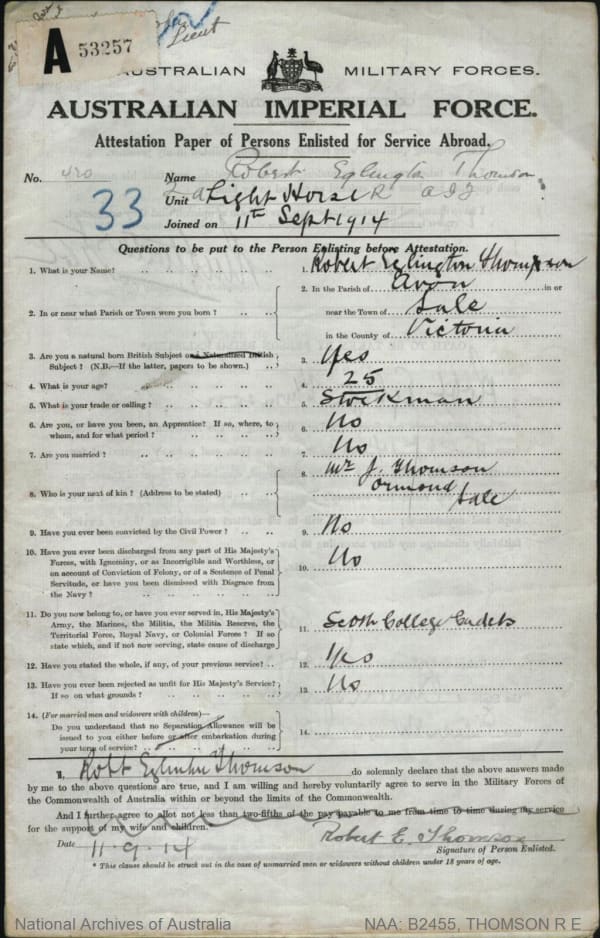 A 53257
Lieut
AUSTRALIAN MILITARY FORCES.
AUSTRALIAN IMPERIAL FORCE.
Attestation Paper of Persons Enlisted for Service Abroad.
No. 420 Name Robert Eglington Thomson
33 Unit Light Horse R AIF
Joined on 11th Sept 1914
Questions to be put to the Person Enlisting before Attestation.
1. What is your Name? .. .. .. .. .. 1. Robert Eglington Thompson
2. In or near what Parish or Town were you born? .. .. 2. In the Parish of Avon in or
near the Town of Sale
in the County of Victoria
3. Are you a natural born British Subject or a Naturalized British
Subject? (N.B.—If the latter, papers to be shown.) .. .. 3. Yes
4. What is your age? .. .. .. .. .. 4. 25
5. What is your trade or calling? .. .. .. .. 5. Stockman
6. Are you, or have you been, an Apprentice? If so, where, to
whom, and for what period? .. .. .. .. 6. No
7. Are you married? .. .. .. .. .. 7. No
8. Who is your next of kin? (Address to be stated) .. .. 8. Mr J. Thomson
Ormond
Sale
9. Have you ever been convicted by the Civil Power? .. .. 9. No
10. Have you ever been discharged from any part of His Majesty's
Forces, with Ignominy, or as Incorrigible and Worthless, or
on account of Conviction of Felony, or of a Sentence of Penal
Servitude, or have you been dismissed with Disgrace from
the Navy? .. .. .. .. .. 10. No
11. Do you now belong to, or have you ever served in, His Majesty's
Army, the Marines, the Militia, the Militia Reserve, the
Territorial Force, Royal Navy, or Colonial Forces? If so
state which, and if not now serving, state cause of discharge 11. Scotch College Cadets
12. Have you stated the whole, if any, of your previous service? .. 12. Yes
13. Have you ever been rejected as unfit for His Majesty's Service?
If so on what grounds? .. .. .. .. 13. No
14. (For married men and widowers with children)—
Do you understand that no Separation Allowance will be
issued to you either before or after embarkation during
your term of service? .. .. .. .. 14.
I, Robt Eglinton Thomson do solemnly declare that the above answers made
by me to the above questions are true, and I am willing and hereby voluntarily agree to serve in the Military Forces of
the Commonwealth of Australia within or beyond the limits of the Commonwealth.
And I further agree to allot not less than two-fifths of the pay payable to me from time to time during my service
for the support of my wife and children.
Date 11.9.14 Robert E. Thomson
Signature of Person Enlisted.
* This clause should be struck out in the case of unmarried men or widowers without children under 18 years of age.
National Archives of Australia NAA: B2455, THOMSON R E